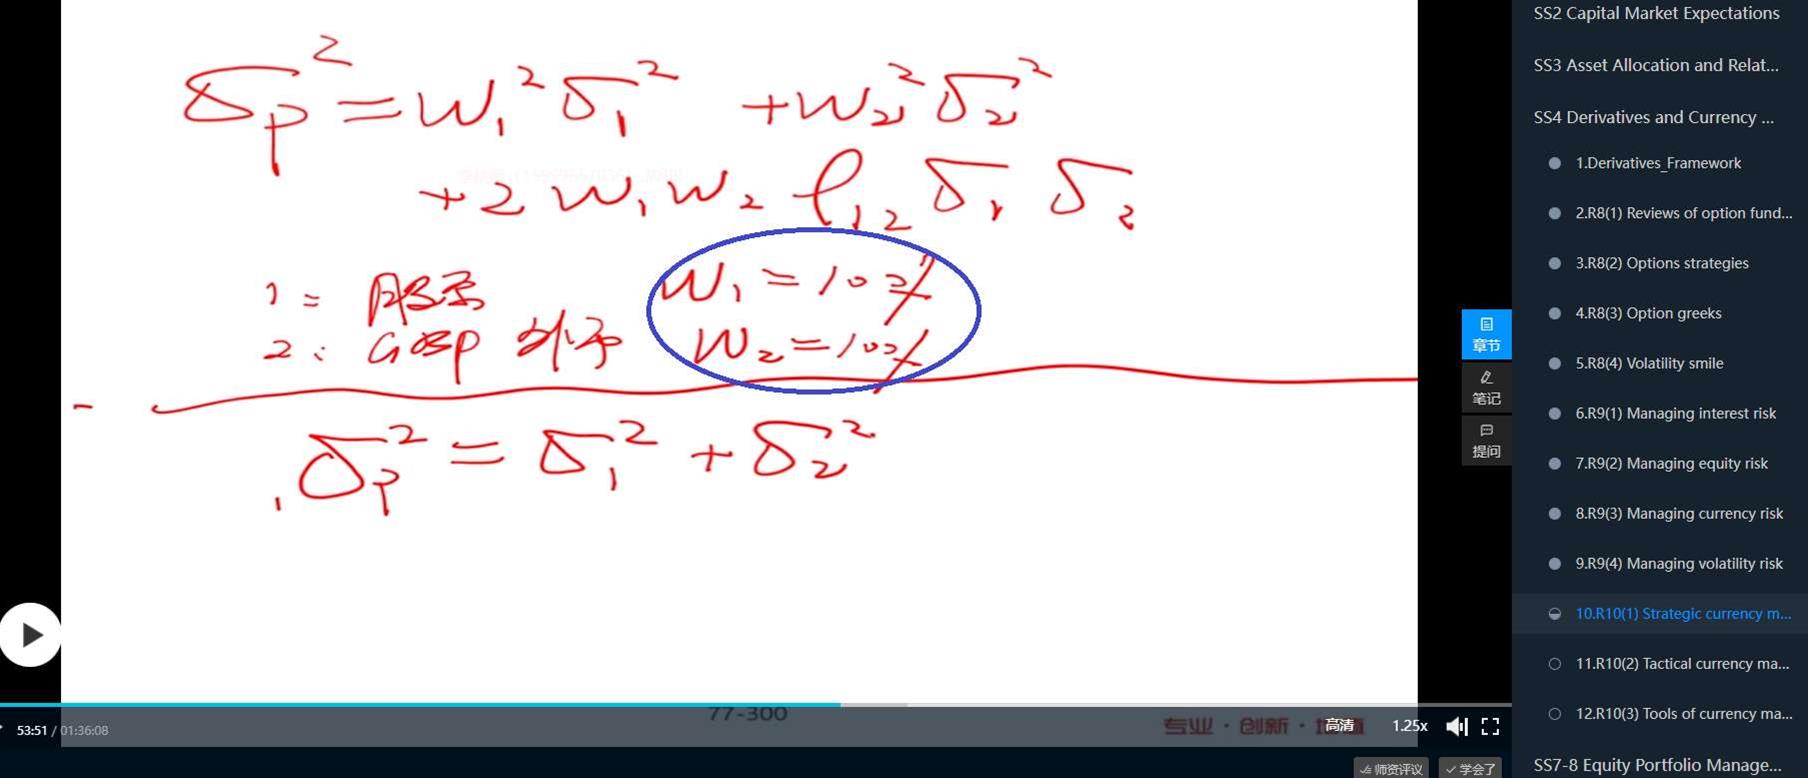 σp² = w₁²σ₁² + w₂²σ₂²
+ 2 w₁ w₂ ρ₁₂ σ₁ σ₂
1 = 股票 w₁ = 100%
2: GBP 外币 w₂ = 100%
σp² = σ₁² + σ₂²
77-300
专业·创新·增值
53:51 / 01:36:08
高清
1.25x
章节
笔记
提问
师资评议
学会了
SS2 Capital Market Expectations
SS3 Asset Allocation and Relat...
SS4 Derivatives and Currency ...
1.Derivatives_Framework
2.R8(1) Reviews of option fund...
3.R8(2) Options strategies
4.R8(3) Option greeks
5.R8(4) Volatility smile
6.R9(1) Managing interest risk
7.R9(2) Managing equity risk
8.R9(3) Managing currency risk
9.R9(4) Managing volatility risk
10.R10(1) Strategic currency m...
11.R10(2) Tactical currency ma...
12.R10(3) Tools of currency ma...
SS7-8 Equity Portfolio Manage...